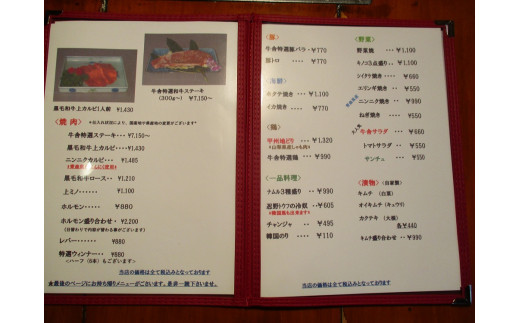 黒毛和牛上カルビ1人前 ¥1,430
牛舎特選和牛ステーキ
(300g〜) ¥7,150〜
<焼肉>
牛舎特選ステーキ・・・ ¥7,150〜
黒毛和牛上カルビ・・ ¥1,430
ニンニクカルビ・・・ ¥1,485
黒毛和牛ロース・・ ¥1,210
上ミノ・・・・・・ ¥1,100
ホルモン・・・・・ ¥880
ホルモン盛り合わせ・ ¥2,200
(日替わりで内容が替わる事がございます)
レバー・・・・・・ ¥880
特選ウィンナー・・ ¥660
ハーフ(3本)もございます
当店の価格は全て税込みとなっております
★最後のページにお持ち帰りメニューがございます。是非一願下さいませ。
<豚>
牛舎特選豚バラ・・ ¥770
豚トロ・・ ¥770
<海鮮>
エタテ焼き・・ ¥1,100
イカ焼き・・ ¥770
<鶏>
甲州地どり・・ ¥1,320
牛舎特選鶏・・ ¥990
<一品料理>
ナムル3種盛り・・ ¥990
忍野トウフの冷奴・・ ¥605
チャンジャ・・ ¥495
韓国のり・・ ¥110
<野菜>
野菜焼・・ ¥1,100
キノコ3点盛り・・ ¥1,100
シイタケ焼き・・ ¥660
エリンギ焼き・・ ¥550
ニンニク焼き・・ ¥990
ねぎ焼き・・ ¥550
牛舎サラダ・・ ¥660
トマトサラダ・・ ¥550
サンチュ・・ ¥550
<漬物>(自家製)
キムチ(白菜)
オイキムチ(キュウリ)
カクテキ(大根)
各¥440
キムチ盛り合わせ・・ ¥990
当店の価格は全て税込みとなっております